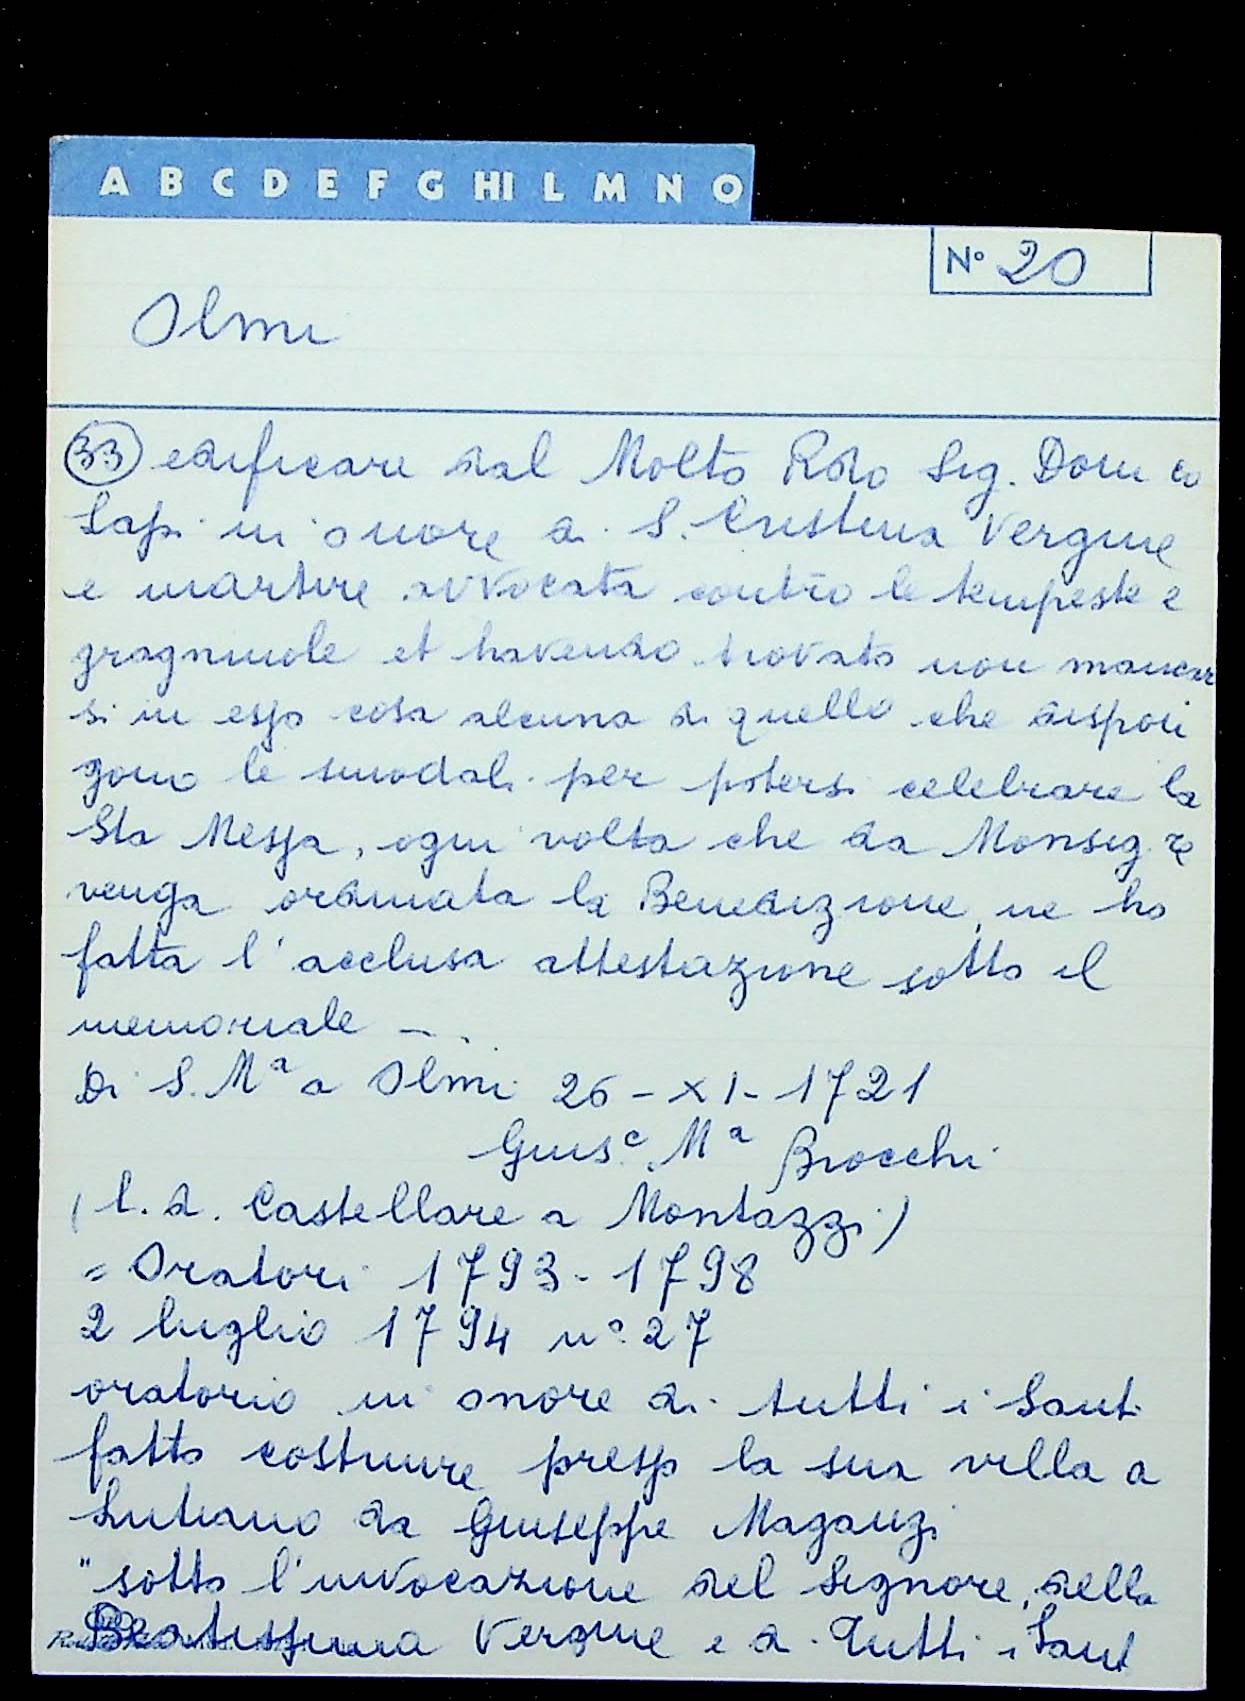 A B C D E F G HI L M N O
N° 20
Olmi
33 edificare dal Molto Rdo Sig. Dom co
Lapi in onore di S. Cristina Vergine
e martire avvocata contro le tempeste e
gragnuole et havendo trovato non mancar
si in esso cosa alcuna di quello che dispon
gono le sinodali per potersi celebrare la
Sta Messa, ogni volta che da Monsig. re
venga ordinata la Benedizione, ne ho
fatta l'acclusa attestazione sotto il
memoriale - .
Di S. Mª a Olmi 26 - XI - 1721
Gius.e Mª Brocchi
(l. d. Castellare a Montazzi)
= Oratori 1793 - 1798
2 luglio 1794 n° 27
oratorio in onore di tutti i Santi
fatto costruire presso la sua villa a
Lutiano da Giuseppe Maganzi
"sotto l'invocazione del Signore, della
Beatissima Vergine e di Tutti i Santi